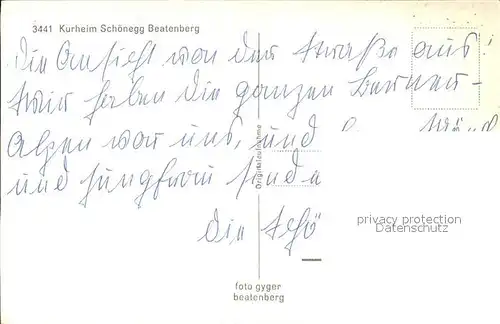 3441 Kurheim Schönegg Beatenberg
Die Ansicht von der Straße aus!
Wir haben die ganzen Berner-
Alpen vor uns, und
und Jungfrau sind
die schö
Originalaufnahme
privacy protection
Datenschutz
foto gyger
beatenberg